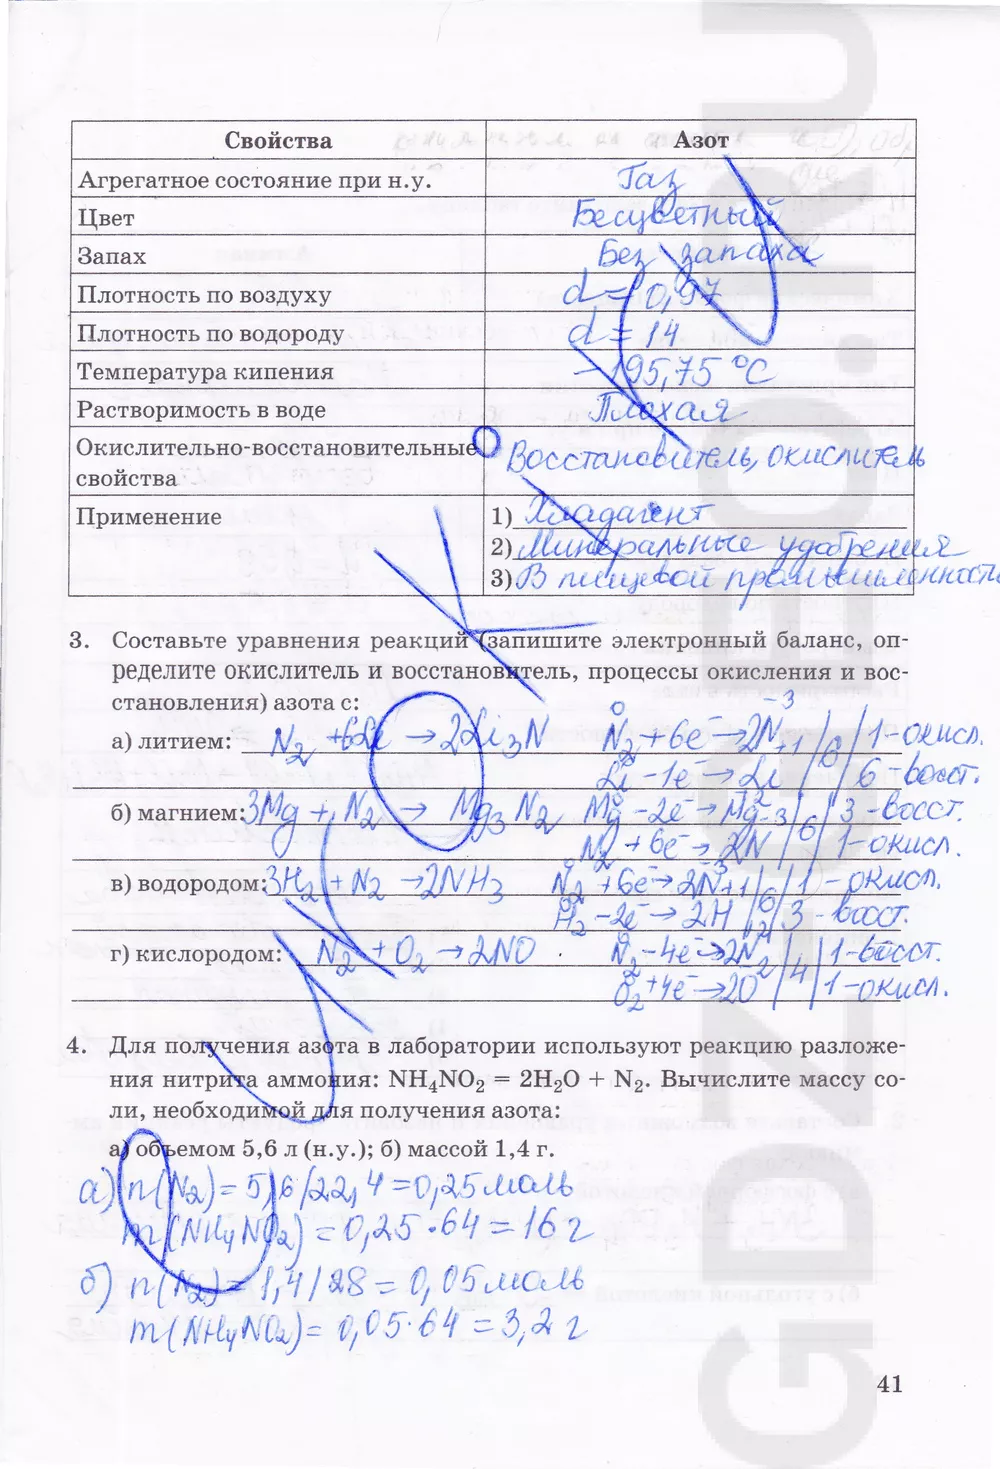 Свойства Азот
Агрегатное состояние при н.у. Газ
Цвет Бесцветный
Запах Без запаха
Плотность по воздуху d = 0,97
Плотность по водороду d = 14
Температура кипения −195,75 °C
Растворимость в воде Плохая
Окислительно-восстановительные
свойства Восстановитель, окислитель
Применение 1) Хладагент
2) Минеральные удобрения
3) В пищевой промышленность
3. Составьте уравнения реакций (запишите электронный баланс, оп-
ределите окислитель и восстановитель, процессы окисления и вос-
становления) азота с:
а) литием: N₂ + 6Li → 2Li₃N N₂⁰ + 6e⁻ → 2N⁻³ / 6 / 1 - окисл.
Li⁰ - 1e⁻ → Li⁺¹ 6 - восст.
б) магнием: 3Mg + N₂ → Mg₃N₂ Mg⁰ - 2e⁻ → Mg⁺² / 6 / 3 - восст.
N₂⁰ + 6e⁻ → 2N⁻³ 1 - окисл.
в) водородом: 3H₂ + N₂ → 2NH₃ N₂⁰ + 6e⁻ → 2N⁻³ / 6 / 1 - окисл.
H₂⁰ - 2e⁻ → 2H⁺¹ 3 - восст.
г) кислородом: N₂ + O₂ → 2NO N₂⁰ - 4e⁻ → 2N⁺² / 4 / 1 - восст.
O₂⁰ + 4e⁻ → 2O⁻² 1 - окисл.
4. Для получения азота в лаборатории используют реакцию разложе-
ния нитрита аммония: NH₄NO₂ = 2H₂O + N₂. Вычислите массу со-
ли, необходимой для получения азота:
а) объемом 5,6 л (н.у.); б) массой 1,4 г.
а) n(N₂) = 5,6/22,4 = 0,25 моль
m(NH₄NO₂) = 0,25·64 = 16 г
б) n(N₂) = 1,4/28 = 0,05 моль
m(NH₄NO₂) = 0,05·64 = 3,2 г
41
GDZGEO.RU